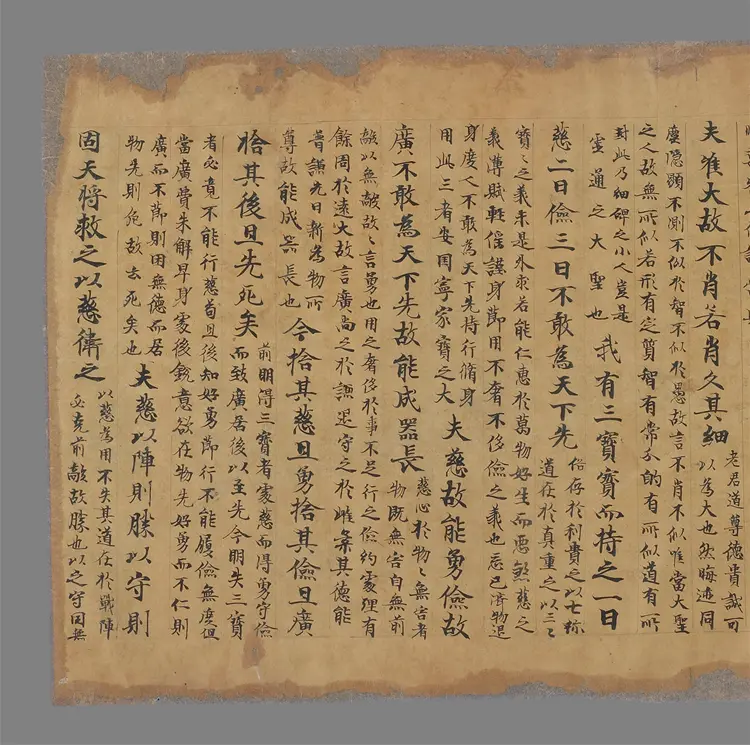 夫唯大故不肖若肖久其細
老君道尊德貴誠可
以為大也然晦迹同
塵隱顯不測不似於智不似於愚故言不肖不似唯當大聖
之人故無所似若形有定質智有常分的有所似道有所
封此乃細碑之小人豈是
靈通之大聖也
我有三寶寶而持之一曰
慈二曰儉三曰不敢為天下先
俗存於利貴之以七珎
道在於真重之以三〻
寶〻之義未是外求若能仁惠於萬物好生而惡煞慈之
義薄賦輕傜謹身節用不奢不侈儉之義也忘己濟物退
身度人不敢為天下先持行脩身
用此三者安國寧家寶之大
夫慈故能勇儉故
廣不敢為天下先故能成器長
慈心於物〻無害者
物既無害自無前
敵以無敵故〻言勇也用之奢侈於事不足行之儉約處理有
餘周於遠大故言廣尚之於謙退守之於雌柔其德能
普謙光日新為物所
尊故能成器長也
今捨其慈且勇捨其儉且廣
捨其後且先死矣
前明得三寶者處慈而得勇守儉
而致廣居後以至先今明失三寶
者必竟不能行慈苟且後知好勇節行不能履儉無度但
當廣費未解卑身處後銳意欲在物先好勇而不仁則
廣而不節則困無德而居
物先則危故去死矣也
夫慈以陣則勝以守則
固天將救之以慈衛之
以慈為用不失其道在於戰陣
必克前敵故勝也以之守固無